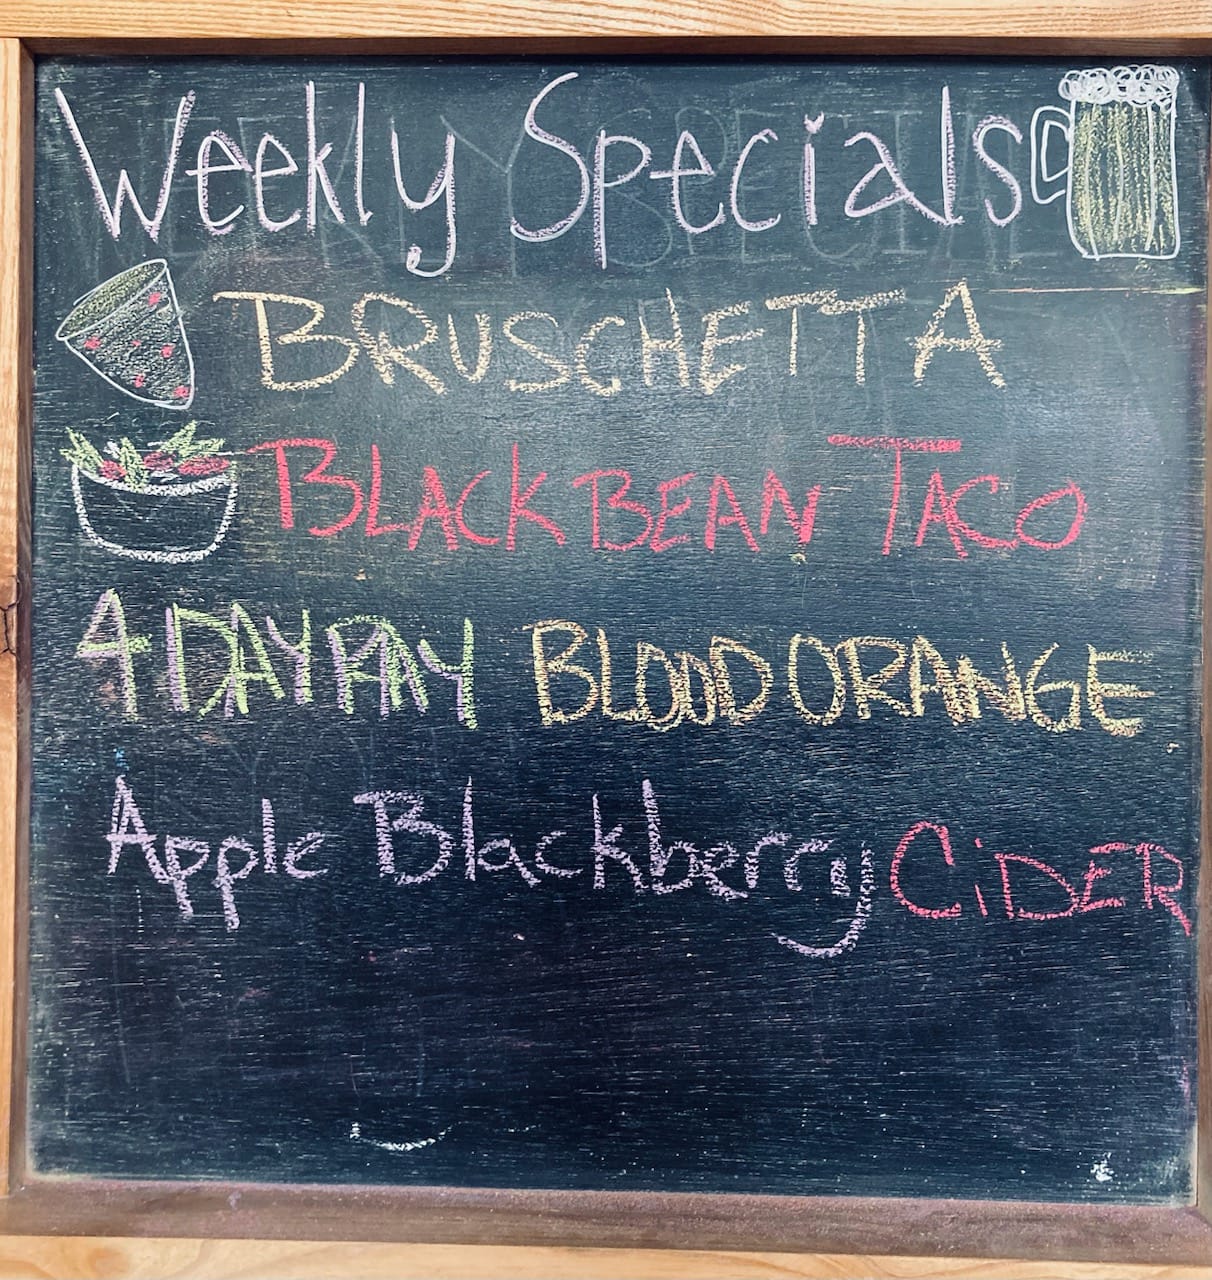 Weekly Specials
BRUSCHETTA
BLACK BEAN TACO
4 DAY RAY BLOOD ORANGE
Apple Blackberry CiDER